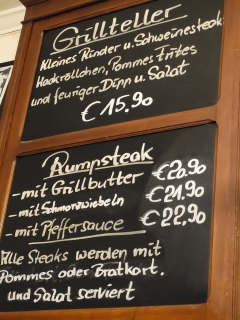 Grillteller
Kleines Rinder u. Schweinesteak
Hackröllchen, Pommes Frites
und feuriger Dipp u. Salat
€ 15,90
Rumpsteak
- mit Grillbutter € 20.90
- mit Schmorzwiebeln € 21,90
- mit Pfeffersauce € 22,90
Alle Steaks werden mit
Pommes oder Bratkart.
und Salat serviert